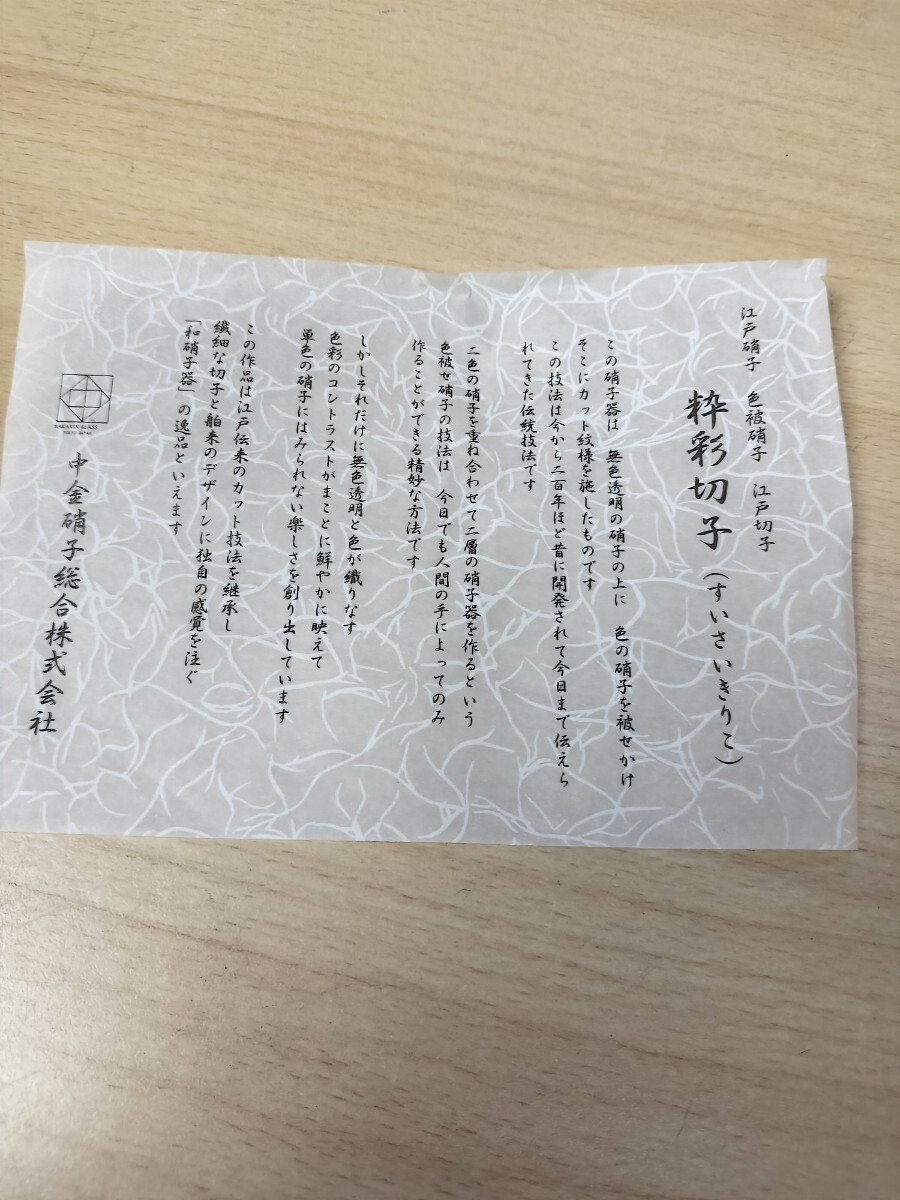 江戸硝子　色被硝子　江戸切子
粋彩切子(すいさいきりこ)
この硝子器は　無色透明の硝子の上に　色の硝子を被せかけ
そこにカット紋様を施したものです
この技法は今から二百年ほど昔に開発されて今日まで伝えら
れてきた伝統技法です
二色の硝子を重ね合わせて二層の硝子器を作るという
色被せ硝子の技法は　今日でも人間の手によってのみ
作ることができる精妙な方法です
しかしそれだけに無色透明と色が織りなす
色彩のコントラストがまことに鮮やかに映えて
単色の硝子にはみられない楽しさを創り出しています
この作品は江戸伝来のカット技法を継承し
繊細な切子と舶来のデザインに独自の感覚を注ぐ
「和硝子器」の逸品といえます
NAKAKIN GLASS
TOKYO JAPAN
中金硝子総合株式会社